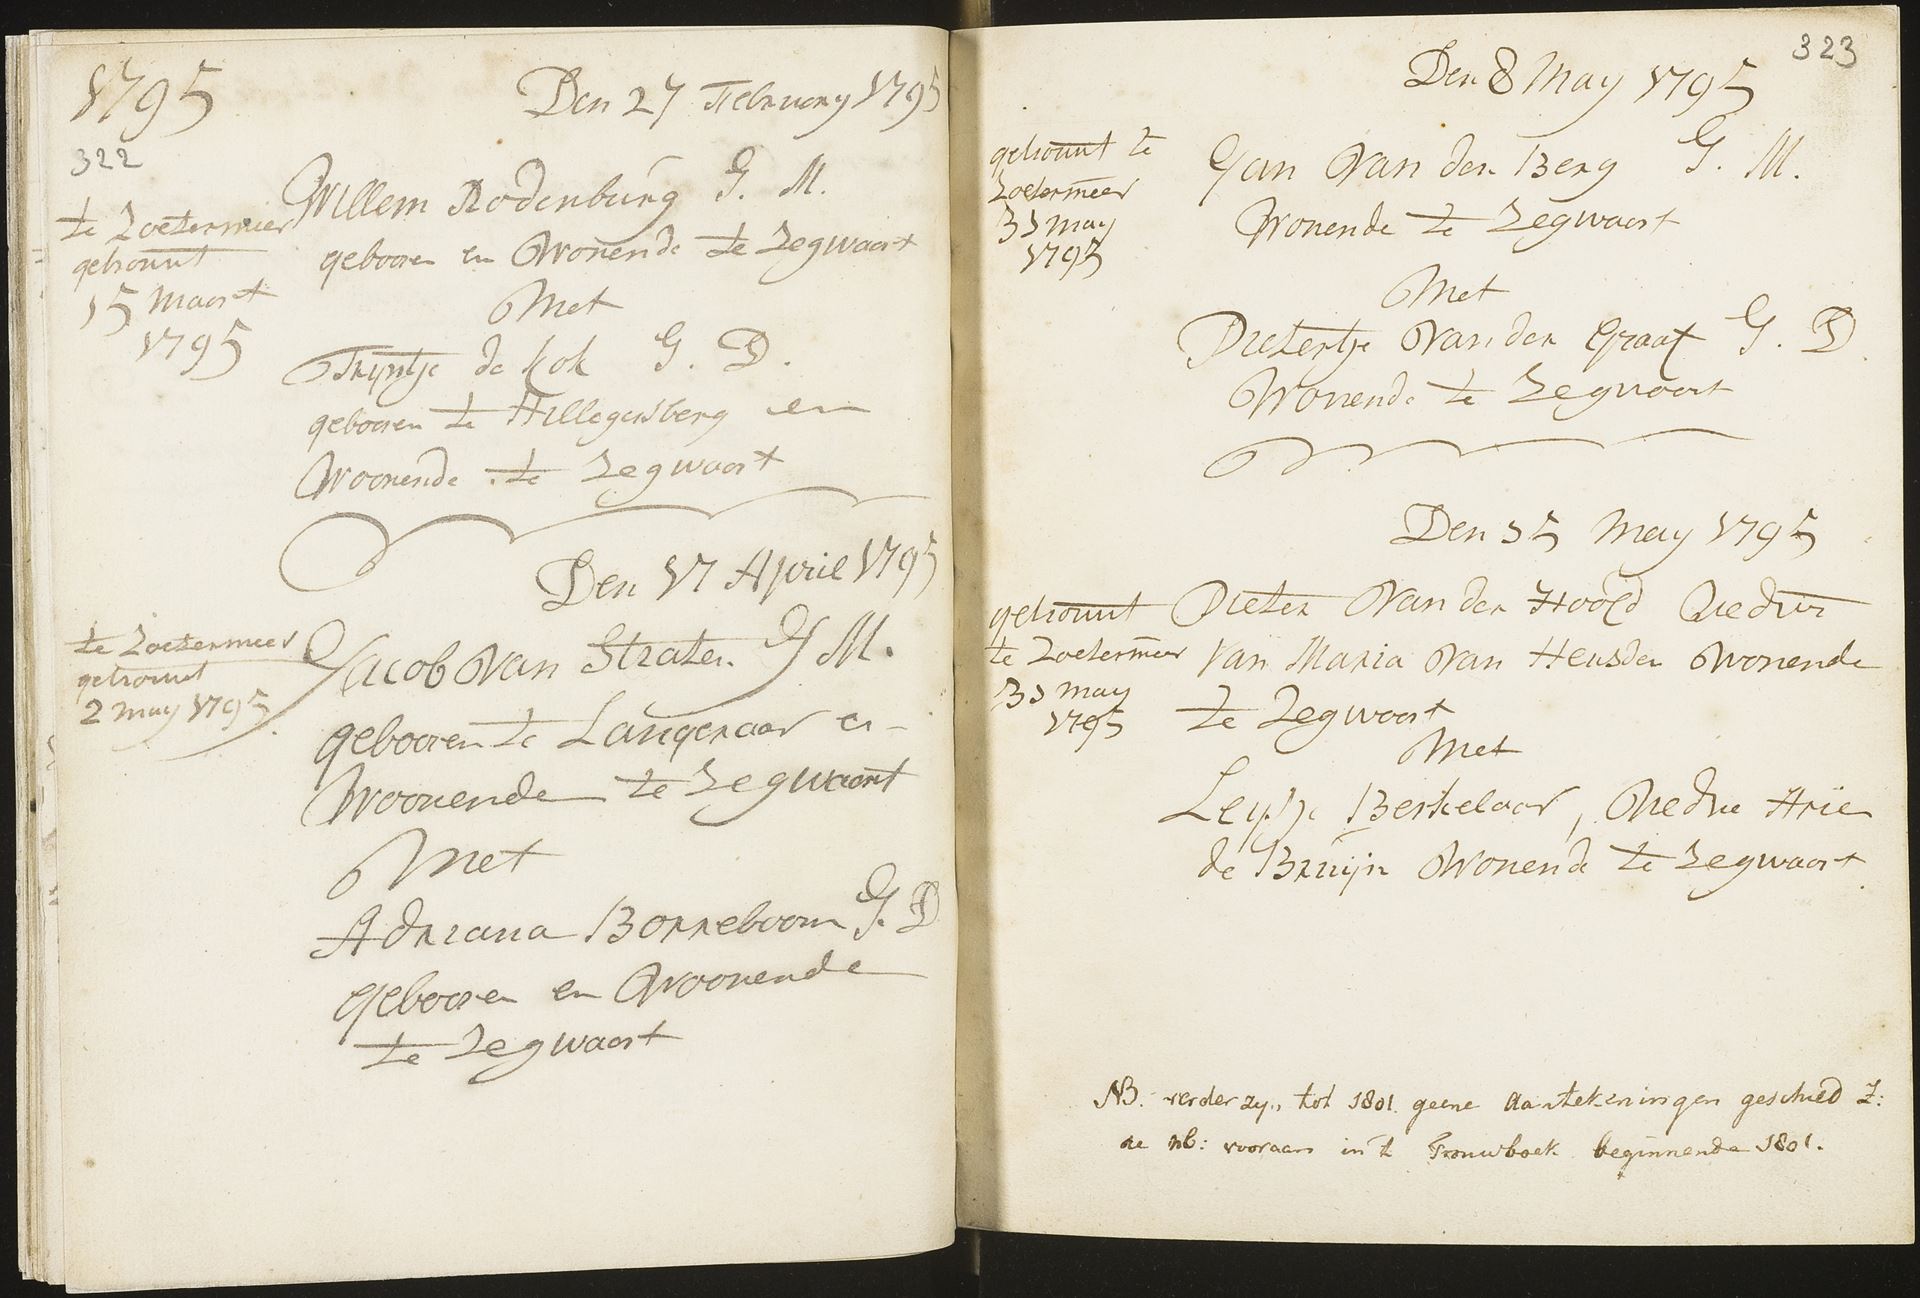 1795
322
Den 27 February 1795
Willem Rodenburg G. M.
te Zoetermeer
getrouwt
15 Maart
1795
gebooren en Wonende te Zegwaart
Met
Trijntje de Kok G. D.
gebooren te Hillegersberg en
Woonende te Zegwaart
Den 17 April 1795
te Zoetermeer
getrouwt
2 may 1795
Jacob Van Straten G M.
gebooren te Langeraar en
Woonende te Zegwaart
Met
Adriana Borreboom G. D
gebooren en Woonende
te Zegwaart
323
Den 8 May 1795
getrouwt te
Zoetermeer
31 may
1795
Jan Van der Berg G. M.
Wonende te Zegwaart
Met
Pietertje Van der Graaf G. D.
Wonende te Zegwaart
Den 15 May 1795
getrouwt
te Zoetermeer
31 may
1795
Pieter Van der Hoofd Wedwr
Van Maria Van Heusden Wonende
te Zegwaart
Met
Berkelaar, Wedwe Arie
de Bruijn Wonende te Zegwaart
NB. verder zyn tot 1801. geene Aantekeningen geschied Z:
de nb: vooraan in 't Trouwboek beginnende 1801.